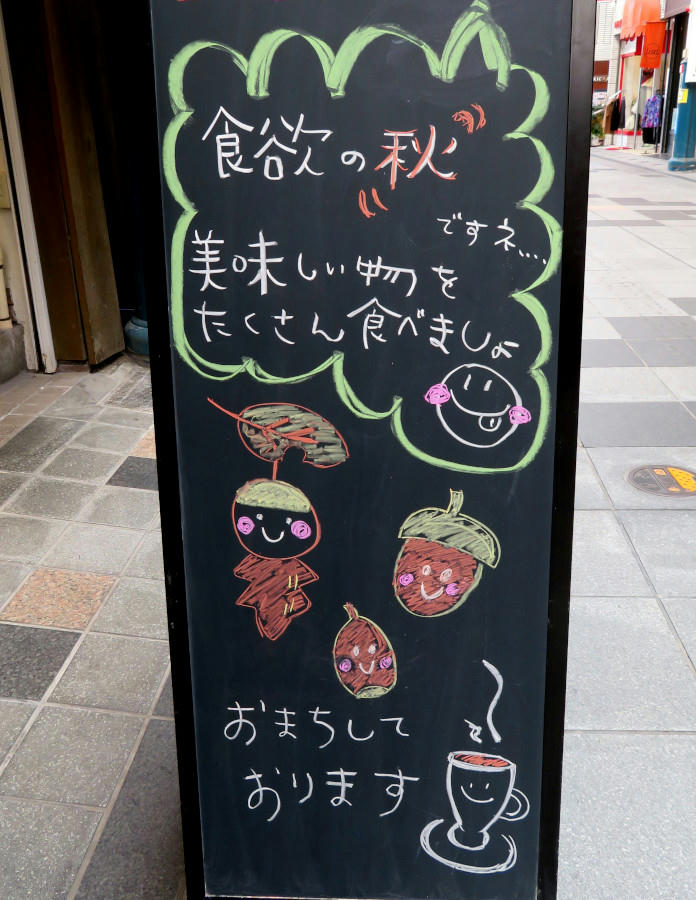 食欲の秋
ですネ、、、
美味しい物を
たくさん食べましょ
おまちして
おります